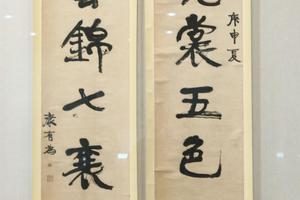 庚申夏
裳五色
錦七襄
康有為